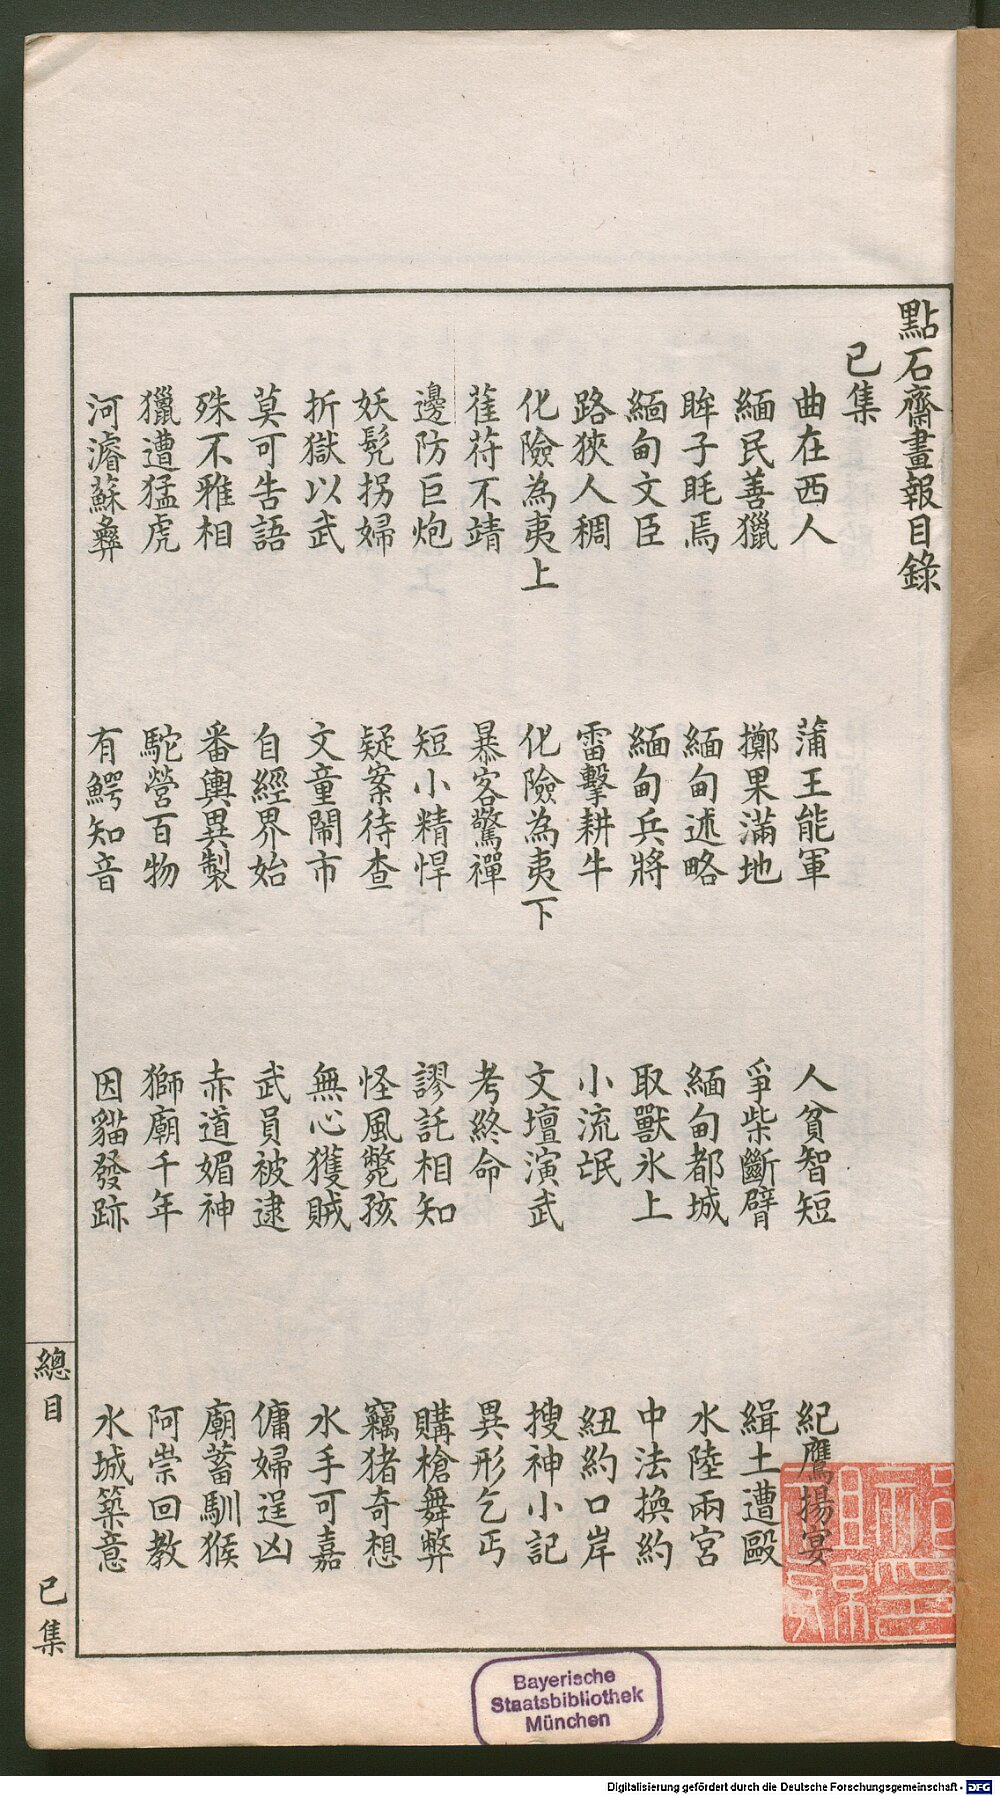 點石齋畫報目錄
已集
曲在西人 蒲王能軍 人貧智短 紀鷹揚宴
緬民善獵 擲果滿地 爭柴斷臂 緝土遭毆
眸子眊焉 緬甸述略 緬甸都城 水陸兩宮
緬甸文臣 緬甸兵將 取獸氷上 中法換約
路狹人稠 雷擊耕牛 小流氓 紐約口岸
化險為夷上 化險為夷下 文壇演武 搜神小記
萑苻不靖 暴客驚禪 考終命 異形乞丐
邊防巨炮 短小精悍 謬託相知 購槍舞弊
妖髡拐婦 疑案待查 怪風斃孩 竊猪奇想
折獄以武 文童鬧市 無心獲賊 水手可嘉
莫可告語 自經界始 武員被逮 傭婦逞凶
殊不雅相 番輿異製 赤道媚神 廟蓄馴猴
獵遭猛虎 駝營百物 獅廟千年 阿崇回教
河濬蘇彝 有鰐知音 因貓發跡 水城築意
總目 已集
Bayerische
Staatsbibliothek
München
Digitalisierung gefördert durch die Deutsche Forschungsgemeinschaft - DFG